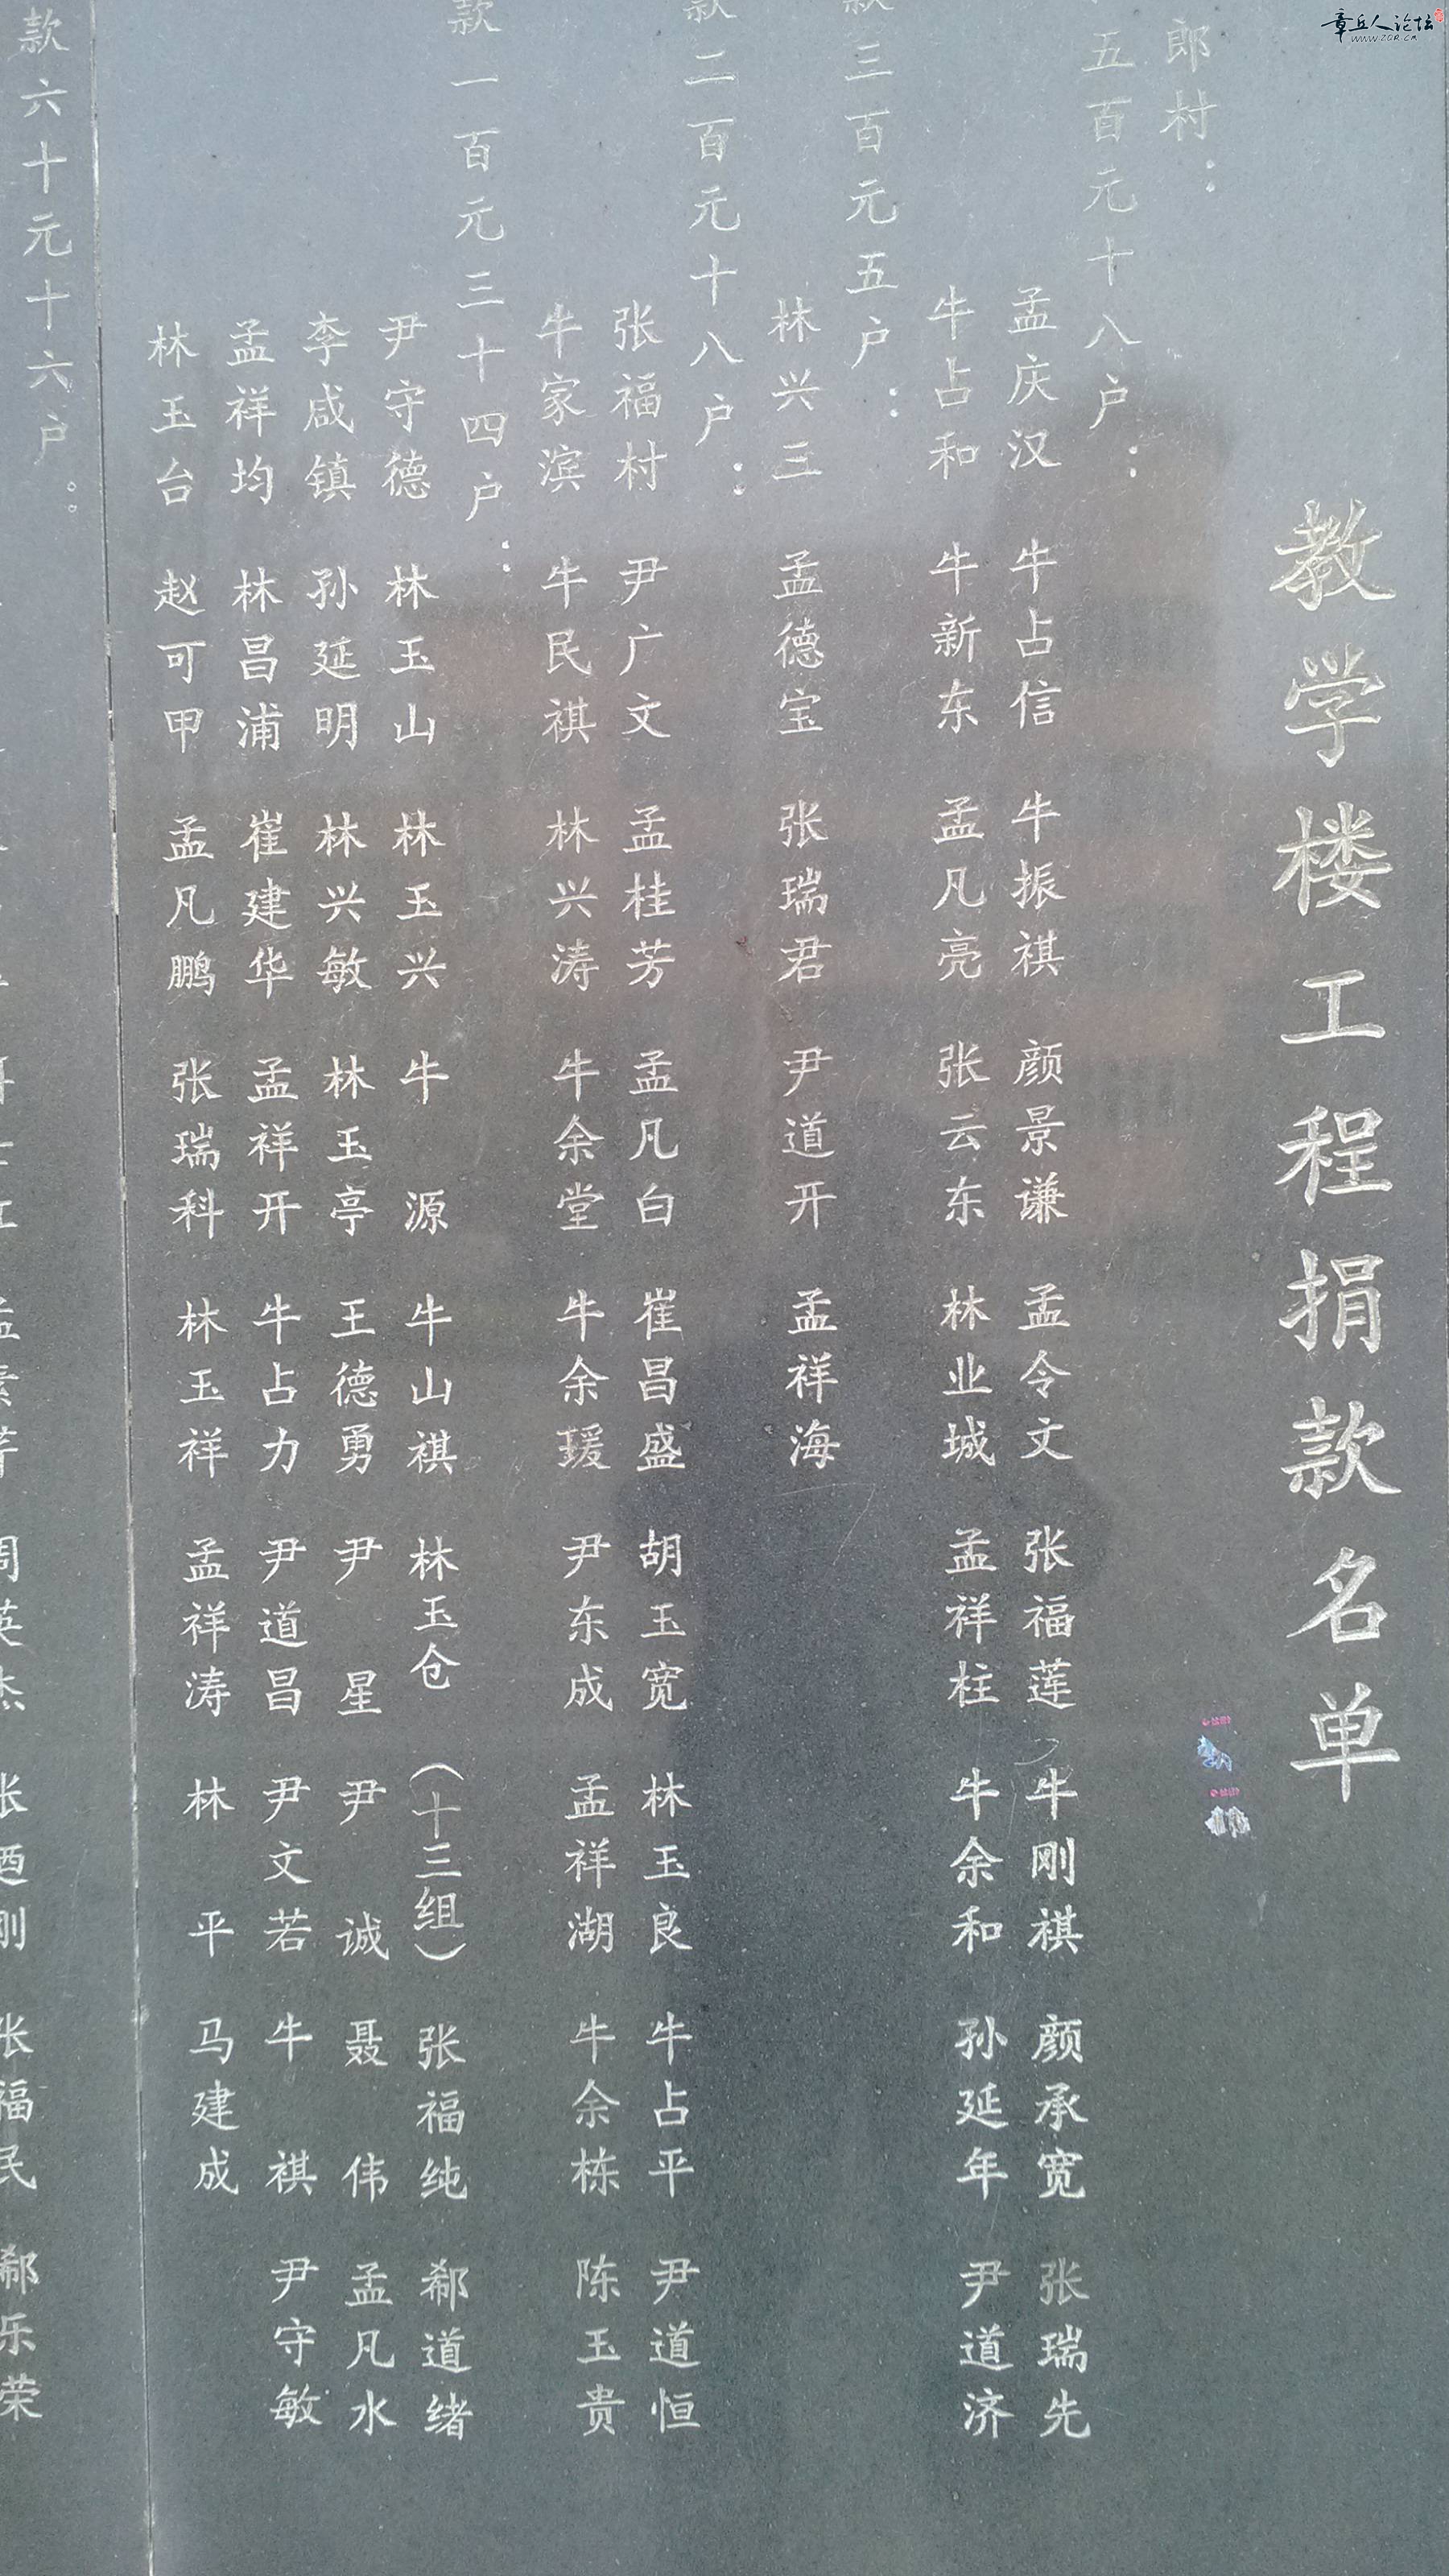 章丘人论坛
www.zqr.cn
教学楼工程捐款名单
郎村：
五百元十八户：
孟庆汉 牛占信 牛振祺 颜景谦 孟令文 张福莲 牛刚祺 颜承宽 张瑞先
牛占和 牛新东 孟凡亮 张云东 林业城 孟祥柱 牛余和 孙延年 尹道济
款三百元五户：
林兴三 孟德宝 张瑞君 尹道开 孟祥海
款二百元十八户：
张福村 尹广文 孟桂芳 孟凡白 崔昌盛 胡玉宽 林玉良 牛占平 尹道恒
牛家滨 牛民祺 林兴涛 牛余堂 牛余瑗 尹东成 孟祥湖 牛余栋 陈玉贵
款一百元三十四户：
尹守德 林玉山 林玉兴 牛源 牛山祺 林玉仓（十三组） 张福纯 郗道绪
李咸镇 孙延明 林兴敏 林玉亭 王德勇 尹星 尹诚 聂伟 孟凡水
孟祥均 林昌浦 崔建华 孟祥开 牛占力 尹道昌 尹文若 牛祺 尹守敏
林玉台 赵可甲 孟凡鹏 张瑞科 林玉祥 孟祥涛 林平 马建成
款六十元十六户：
孟素芹 周英杰 张西刚 张福民 郗乐荣